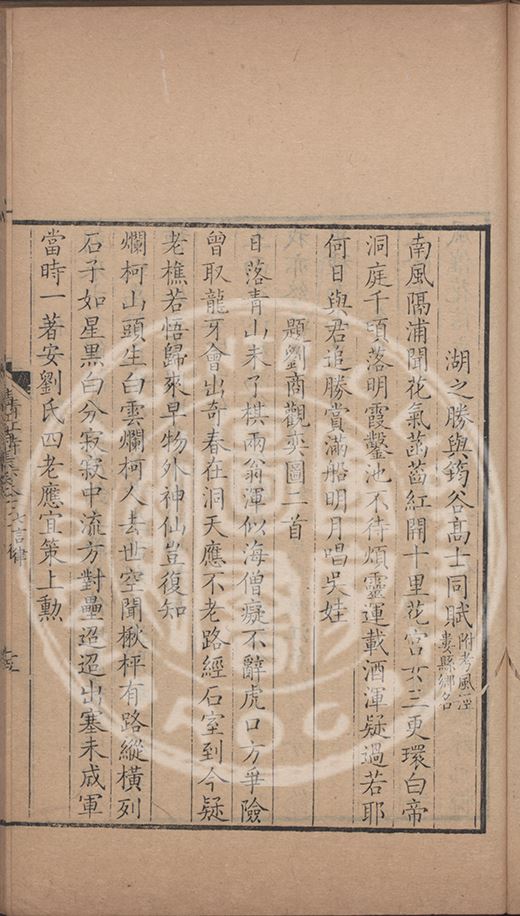 湖之勝與筠谷髙士同賦附考風涇婁縣鄉名
南風隔浦聞花氣菡萏紅開十里花宮女三更環白帝
洞庭千頃落明霞鑿池不待煩靈運載酒渾疑過若耶
何日與君追勝賞滿船明月唱吳娃
題劉商觀奕圖二首
日落青山未了棋兩翁渾似海僧癡不辭虎口方爭險
曾取龍牙會出奇春在洞天應不老路經石室到今疑
老樵若悟歸來早物外神仙豈復知
爛柯山頭生白雲爛柯人去世空聞楸枰有路縱橫列
石子如星黑白分寂寂中流方對壘迢迢出塞未成軍
當時一著安劉氏四老應宜策上勲
七言律